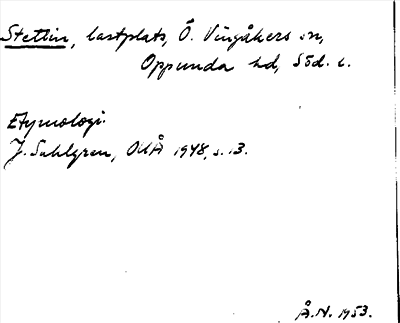 Stettin, lastplats, Ö. Vingåkers sn,
Oppunda hd, Söd. l.
Etymologi.
J. Sahlgren, OUÅ 1948, s. 13.
Å. N. 1953.